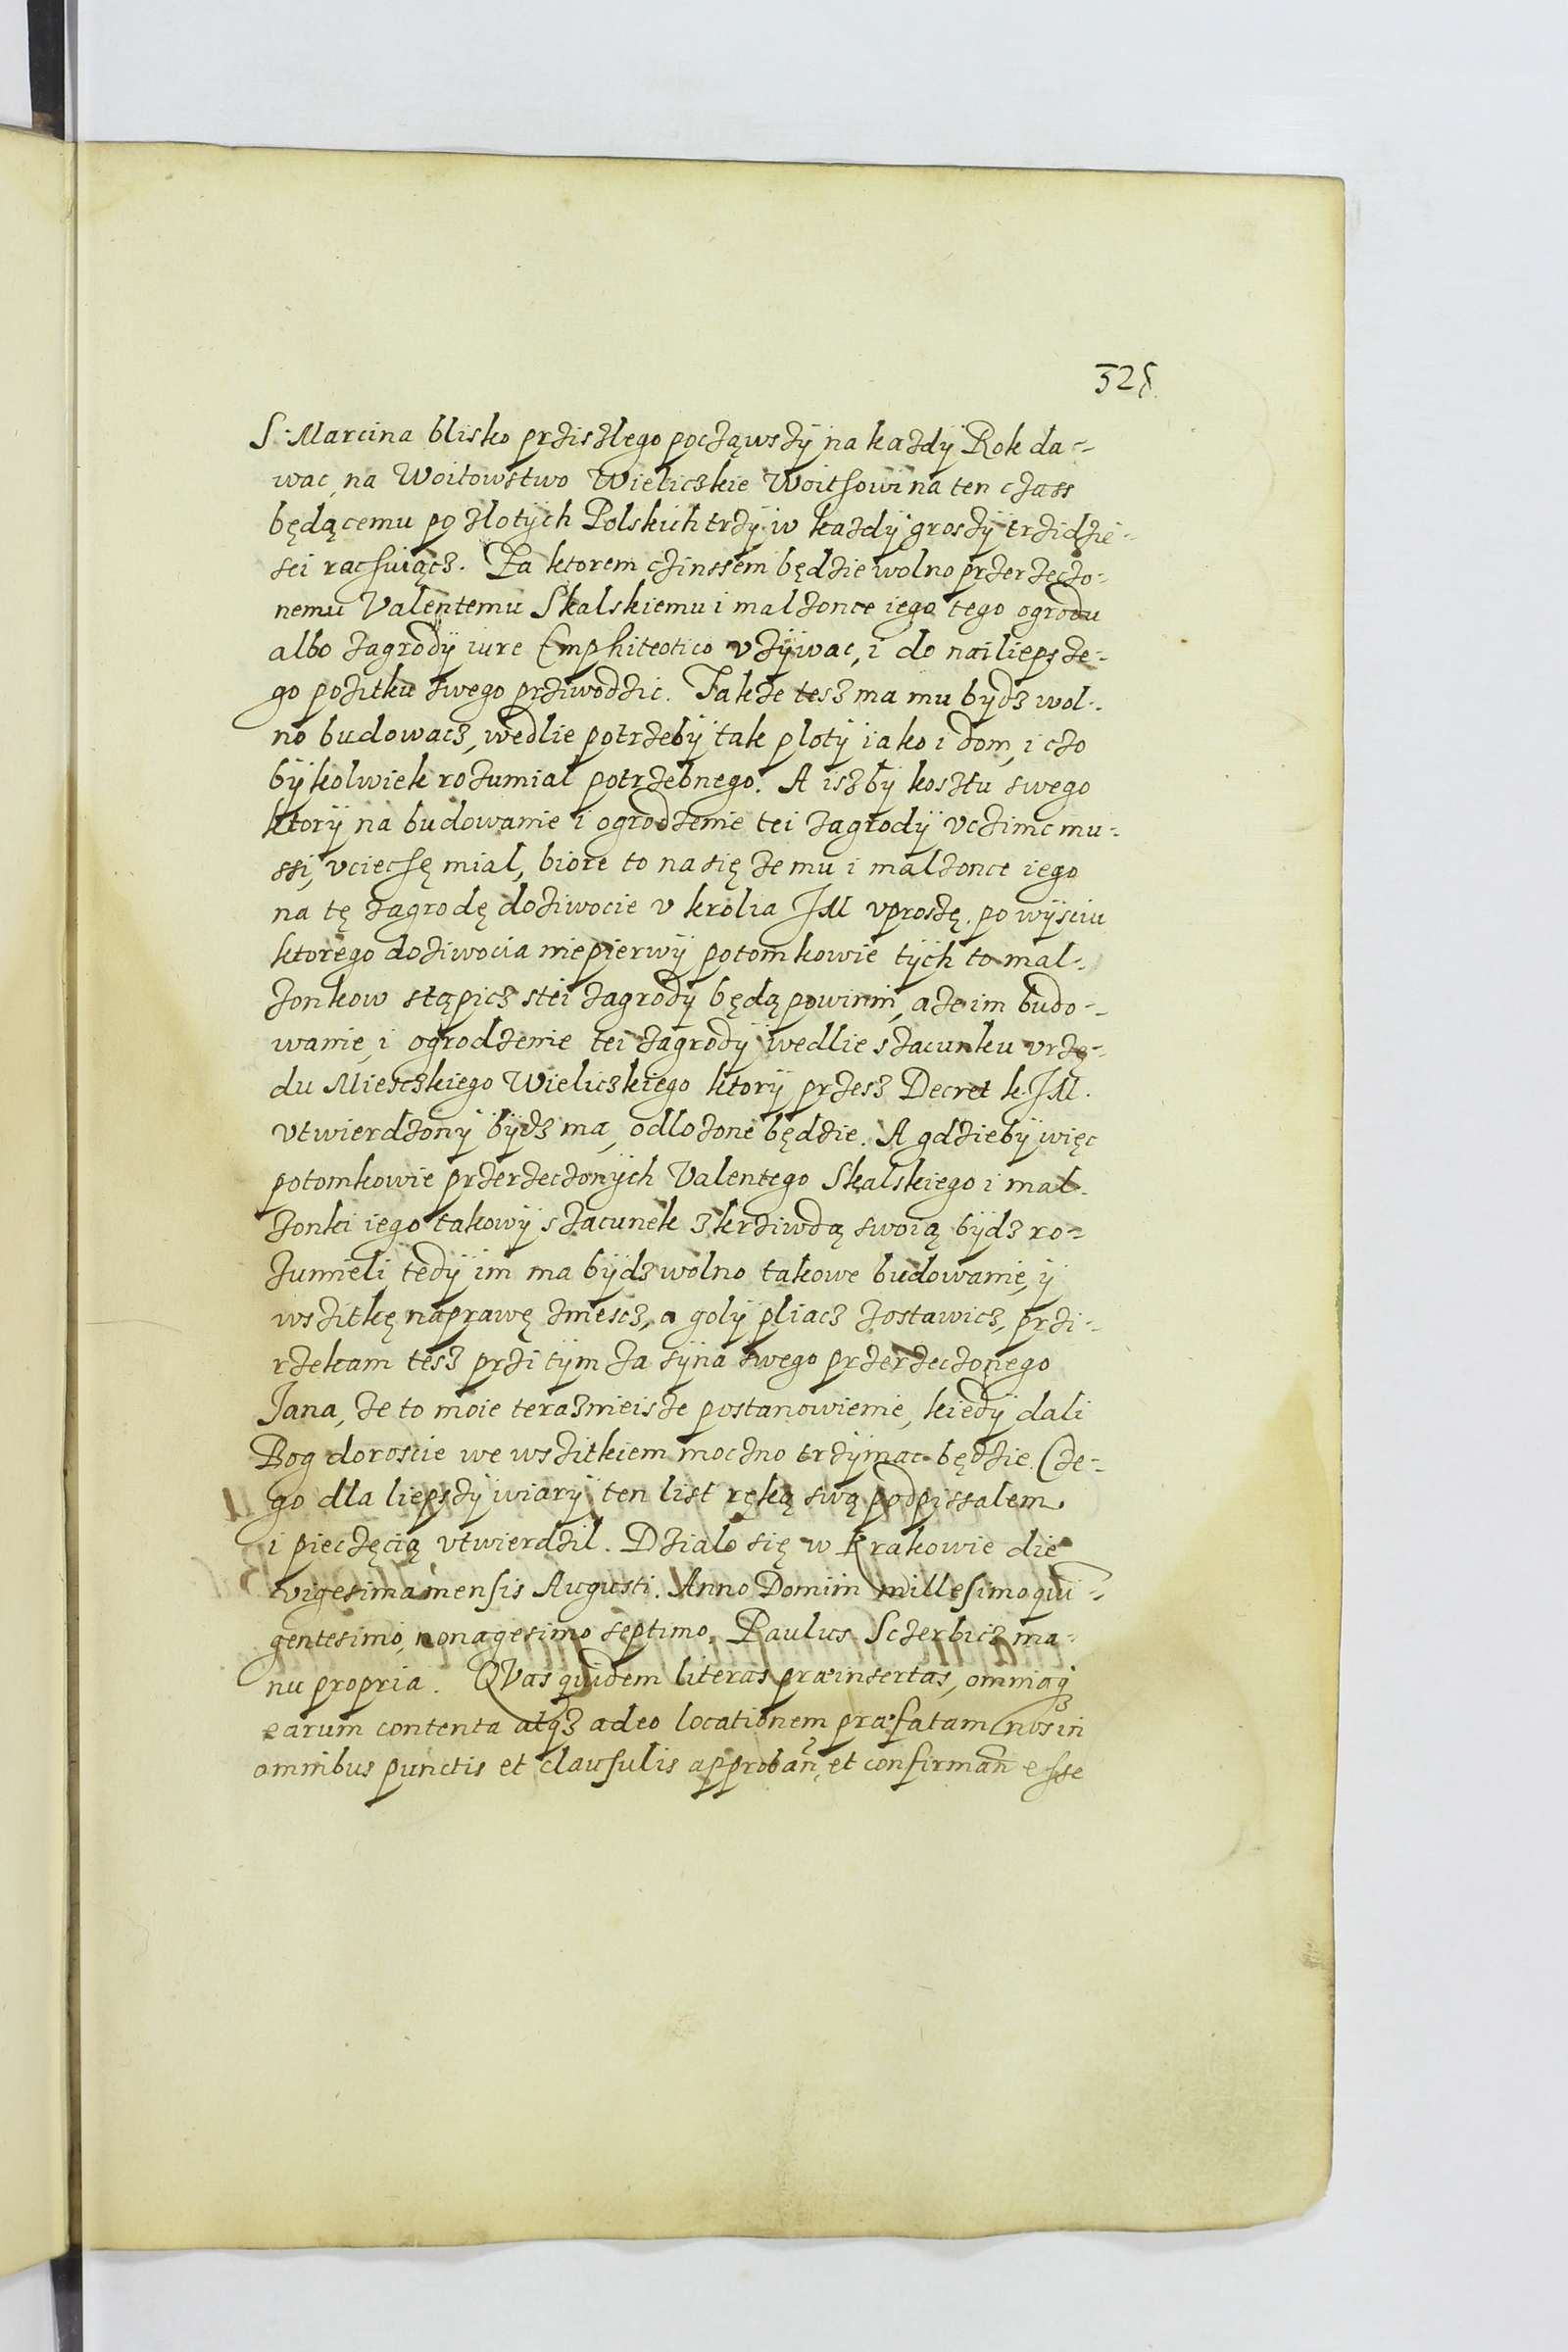 325
S. Marcina blisko prziszlego począwszÿ na każdÿ Rok da-
wac, na Woitowstwo Wieliczkie Woithowi na ten czass
będącemu po zlotÿch Polskich trzÿ w każdÿ groszÿ trzidzie-
sci rachuiącz. Za ktorem czinssem będzie wolno przerzeczo-
nemu Valentemu Skalskiemu i malzonce iego tego ogrodu
albo zagrodÿ iure Emphiteotico vzÿwac, i do nailiepsze-
go pozitku swego prziwodzic. Takze tesz ma mu bydz wol-
no budowacz, wedlie potrzebÿ tak plotÿ iako i dom, i czo
bÿ kolwiek rozumial potrzebnego. A iszbÿ kosztu swego
ktorÿ na budowanie i ogrodzenie tei zagrodÿ vczinic mu-
ssi, vciechę mial, biore to na się ze mu i malzonce iego
na tę zagrodę doziwocie v krolia JM vproszę. po wÿsciu
ktorego doziwocia niepierwÿ potomkowie tÿch to mal-
zonkow stąpicz stei zagrodÿ będą powinni, aze im budo-
wanie i ogrodzenie tei zagrodÿ wedlie szacunku vrzę-
du Miesczkiego Wieliczkiego ktorÿ przesz Decret k. JM.
vtwierdzonÿ bÿdz ma, odlozone będzie. A gdziebÿ więc
potomkowie przerzeczonÿch Valentego Skalskiego i mal-
zonki iego takowÿ szacunek z krziwdą swoią bÿdz ro-
zumieli, tedÿ im ma bÿdz wolno takowe budowanie, ÿ
wszitkę naprawę zniescz, a golÿ pliacz zostawicz, przi-
rzekam tesz przi tÿm za sÿna swego przerzeczonego
Jana, ze to moie teraznieisze postanowienie, kiedÿ dali
Bog doroscie we wszitkiem moczno trzÿmac będzie. Cze-
go dla liepszÿ wiarÿ ten list ręką swą podpissalem
i pieczęcią vtwierdzil. Dzialo się w Krakowie die
vigesima mensis Augusti. Anno Domini millesimo qui-
gentesimo, nonagesimo septimo. Paulus Sczerbicz ma-
nu propria. QVas quidem literas præinsertas, omniaq3
earum contenta atq3 adeo locationem præfatam nos in
omnibus punctis et clausulis approban̄, et confirman̄ esse